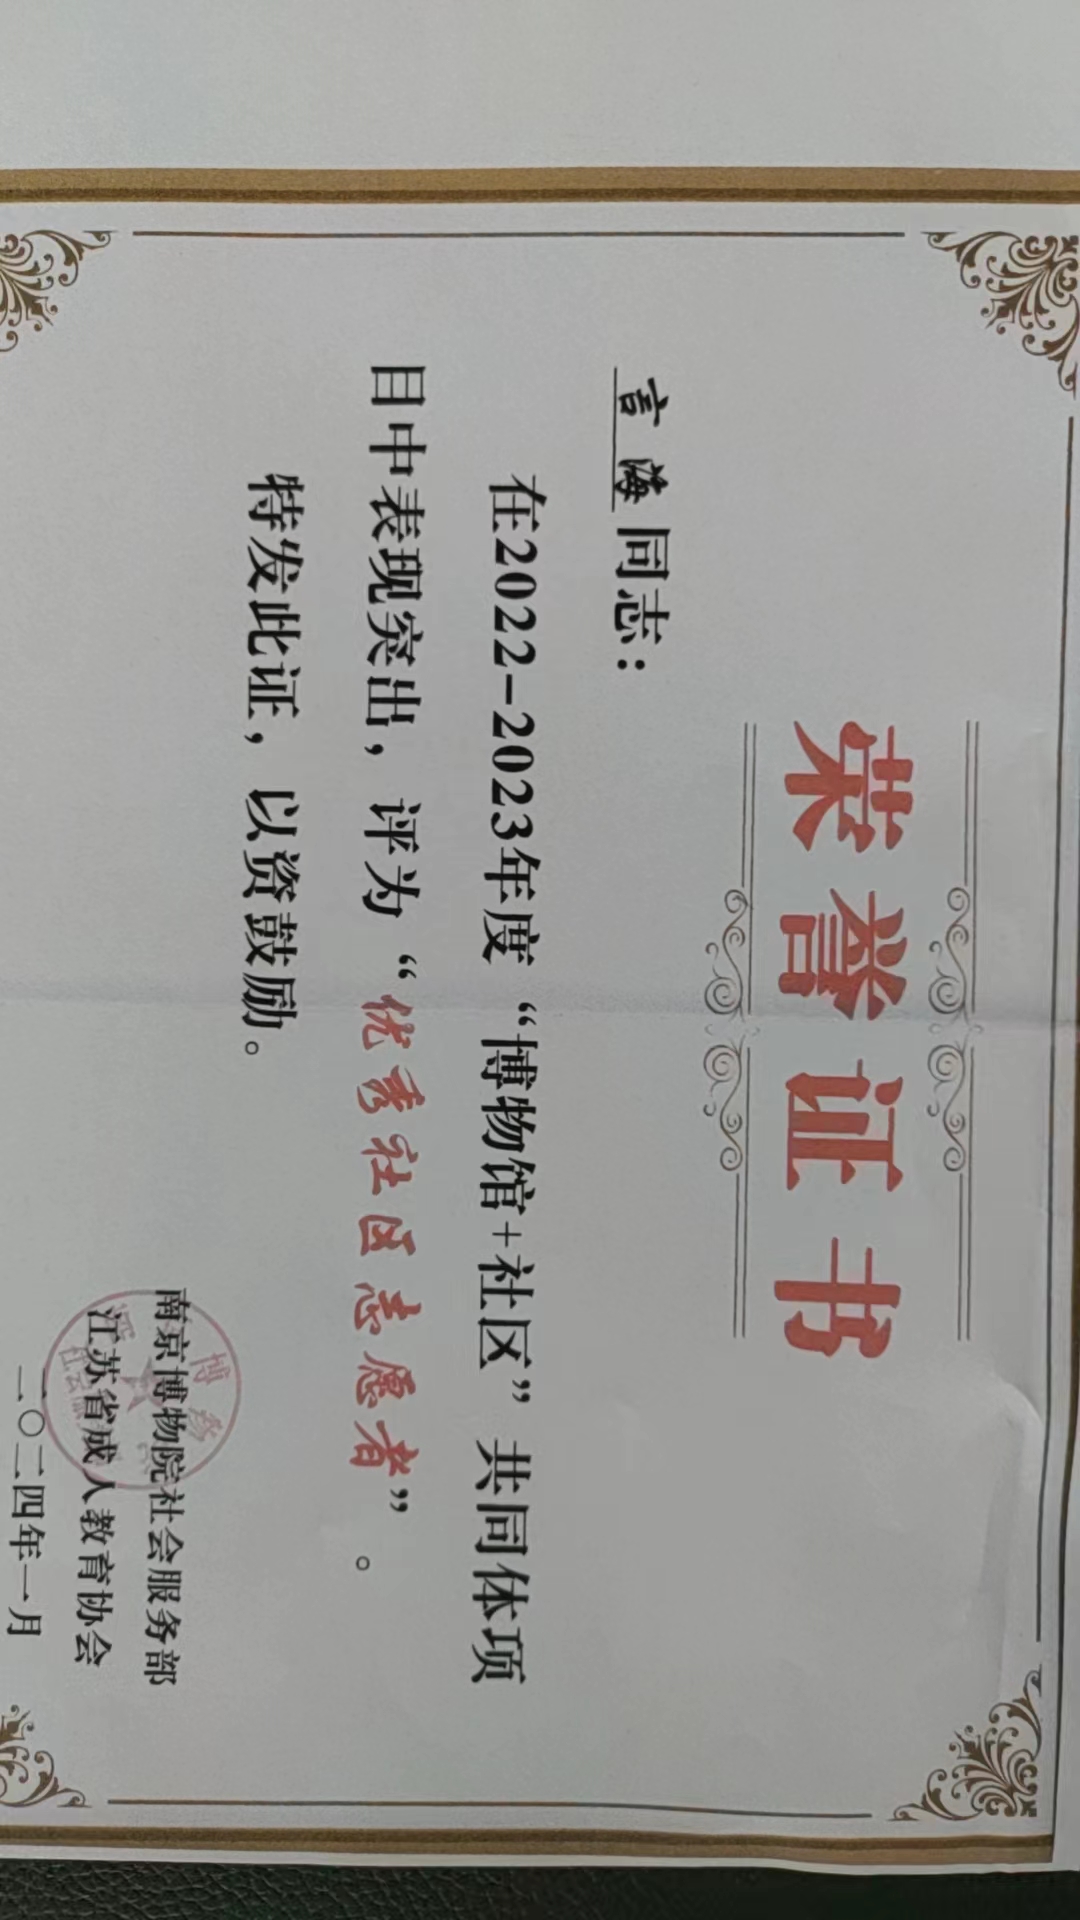 荣誉证书
言海同志：
在2022-2023年度“博物馆+社区”共同体项
目中表现突出，评为“优秀社区志愿者”。
特发此证，以资鼓励。
南京博物院社会服务部
江苏省成人教育协会
二〇二四年一月